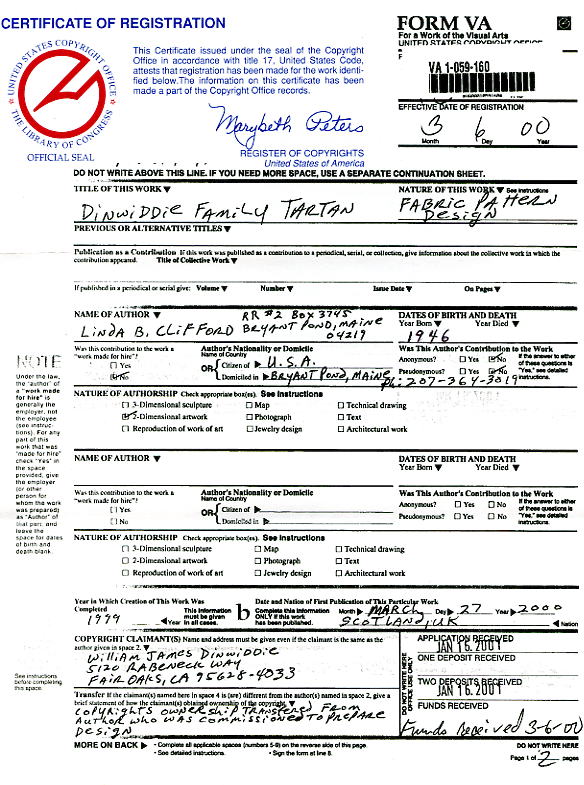 CERTIFICATE OF REGISTRATION
FORM VA
For a Work of the Visual Arts
UNITED STATES COPYRIGHT OFFICE
UNITED STATES COPYRIGHT OFFICE
THE LIBRARY OF CONGRESS
OFFICIAL SEAL
This Certificate issued under the seal of the Copyright
Office in accordance with title 17, United States Code,
attests that registration has been made for the work identi-
fied below. The information on this certificate has been
made a part of the Copyright Office records.
Marybeth Peters
REGISTER OF COPYRIGHTS
United States of America
VA 1-059-160
EFFECTIVE DATE OF REGISTRATION
3 6 00
Month Day Year
DO NOT WRITE ABOVE THIS LINE. IF YOU NEED MORE SPACE, USE A SEPARATE CONTINUATION SHEET.
TITLE OF THIS WORK ▼ NATURE OF THIS WORK ▼ See instructions
Dinwiddie Family Tartan FABRIC PATTERN
Design
PREVIOUS OR ALTERNATIVE TITLES ▼
Publication as a Contribution If this work was published as a contribution to a periodical, serial, or collection, give information about the collective work in which the
contribution appeared. Title of Collective Work ▼
If published in a periodical or serial give: Volume ▼ Number ▼ Issue Date ▼ On Pages ▼
NAME OF AUTHOR ▼ DATES OF BIRTH AND DEATH
Year Born ▼ Year Died ▼
RR #2 Box 3745
Linda B. Clifford Bryant Pond, Maine 1946
04219
Was this contribution to the work a
"work made for hire"?
Yes
No
Author's Nationality or Domicile
Name of Country
OR
Citizen of U.S.A.
Domiciled in Bryant Pond, Maine
Was This Author's Contribution to the Work
Anonymous? Yes No
Pseudonymous? Yes No
If the answer to either
of these questions is
"Yes," see detailed
instructions.
Ph: 207-364-3019
NATURE OF AUTHORSHIP Check appropriate box(es). See instructions
3-Dimensional sculpture Map Technical drawing
2-Dimensional artwork Photograph Text
Reproduction of work of art Jewelry design Architectural work
NOTE
Under the law,
the "author" of
a "work made
for hire" is
generally the
employer, not
the employee
(see instruc-
tions). For any
part of this
work that was
"made for hire"
check "Yes" in
the space
provided, give
the employer
(or other
person for
whom the work
was prepared)
as "Author" of
that part, and
leave the
space for dates
of birth and
death blank.
NAME OF AUTHOR ▼ DATES OF BIRTH AND DEATH
Year Born ▼ Year Died ▼
Was this contribution to the work a
"work made for hire"?
Yes
No
Author's Nationality or Domicile
Name of Country
OR
Citizen of
Domiciled in
Was This Author's Contribution to the Work
Anonymous? Yes No
Pseudonymous? Yes No
If the answer to either
of these questions is
"Yes," see detailed
instructions.
NATURE OF AUTHORSHIP Check appropriate box(es). See instructions
3-Dimensional sculpture Map Technical drawing
2-Dimensional artwork Photograph Text
Reproduction of work of art Jewelry design Architectural work
Year in Which Creation of This Work Was
Completed
1999 Year
This information
must be given
in all cases.
b
Date and Nation of First Publication of This Particular Work
Complete this information
ONLY if this work
has been published.
Month March Day 27 Year 2000
Scotland, UK Nation
See instructions
before completing
this space.
COPYRIGHT CLAIMANT(S) Name and address must be given even if the claimant is the same as the
author given in space 2. ▼
William James Dinwiddie
5120 Rabeneck Way
Fair Oaks, CA 95628-4033
Transfer If the claimant(s) named here in space 4 is (are) different from the author(s) named in space 2, give a
brief statement of how the claimant(s) obtained ownership of the copyright. ▼
Copyrights ownership transfered from
Author who was commissioned to prepare
Design
DO NOT WRITE HERE
OFFICE USE ONLY
APPLICATION RECEIVED
JAN 16. 2001
ONE DEPOSIT RECEIVED
TWO DEPOSITS RECEIVED
JAN 16. 2001
FUNDS RECEIVED
Funds received 3-6-00
MORE ON BACK ▶ • Complete all applicable spaces (numbers 5-9) on the reverse side of this page.
• See detailed instructions. • Sign the form at line 8.
DO NOT WRITE HERE
Page 1 of 2 pages